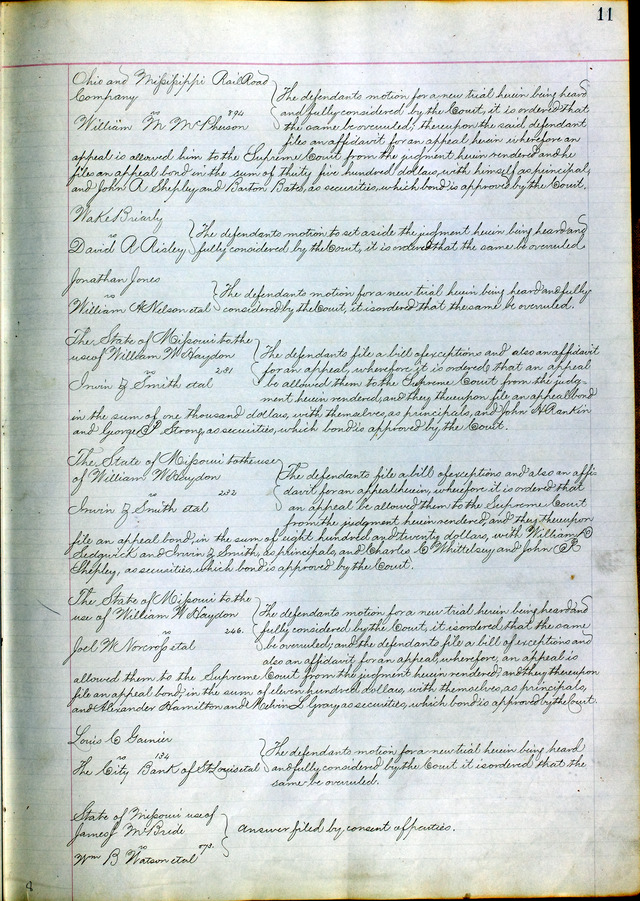 11
Ohio and Mississippi RailRoad
Company
vs 894
William M. McPherson
The defendants motion for a new trial herein being heard
and fully considered by the Court, it is ordered that
the same be overruled; thereupon the said defendant
files an affidavit for an appeal herein wherefore an
appeal is allowed him to the Supreme Court from the judgment herein rendered and he
files an appeal bond in the sum of thirty five hundred dollars, with himself as principal,
and John A Shepley and Barton Bates, as securities, which bond is approved by the Court.
Wake Briarly
vs
David A Risley
The defendants motion to set aside the judgment herein being heard and
fully considered by the Court, it is ordered that the same be overruled
Jonathan Jones
vs
William A Nelson etal
The defendants motion for a new trial herein being heard and fully
considered by the Court, it is ordered that the same be overruled.
The State of Missouri to the
use of William W Haydon
vs 231
Irwin Z Smith etal
The defendants file a bill of exceptions and also an affidavit
for an appeal, wherefore it is ordered that an appeal
be allowed them to the Supreme Court from the judg-
ment herein rendered, and they thereupon file an appeal bond
in the sum of one thousand dollars, with themselves, as principals, and John H Rankin
and George P Strong, as securities, which bond is approved by the Court.
The State of Missouri to the use
of William W Haydon
vs 232
Irwin Z Smith etal
The defendants file a bill of exceptions and also an affi-
davit for an appeal herein, wherefore it is ordered that
an appeal be allowed them to the Supreme Court
from the judgment herein rendered, and they thereupon
file an appeal bond, in the sum of eight hundred and twenty dollars, with William
Sedgwick and Irwin Z Smith, as principals, and Charles C Whittelsey and John R
Shepley, as securities, which bond is approved by the Court.
The State of Missouri to the
use of William W Haydon
vs 246.
Joel M Norcross etal
The defendants motion for a new trial herein being heard and
fully considered by the Court, it is ordered that the same
be overruled; and the defendants file a bill of exceptions and
also an affidavit for an appeal, wherefore, an appeal is
allowed them to the Supreme Court from the judgment herein rendered, and they thereupon
file an appeal bond, in the sum of eleven hundred dollars, with themselves, as principals,
and Alexander Hamilton and Melvin L Gray as securities, which bond is approved by the Court.
Louis C Garnier
vs 134
The City Bank of St Louis etal
The defendants motion for a new trial herein being heard
and fully considered by the Court it is ordered that the
same be overruled.
State of Missouri use of
James McBride
vs 073.
Wm B Watson etal
Answer filed by consent of parties.
8